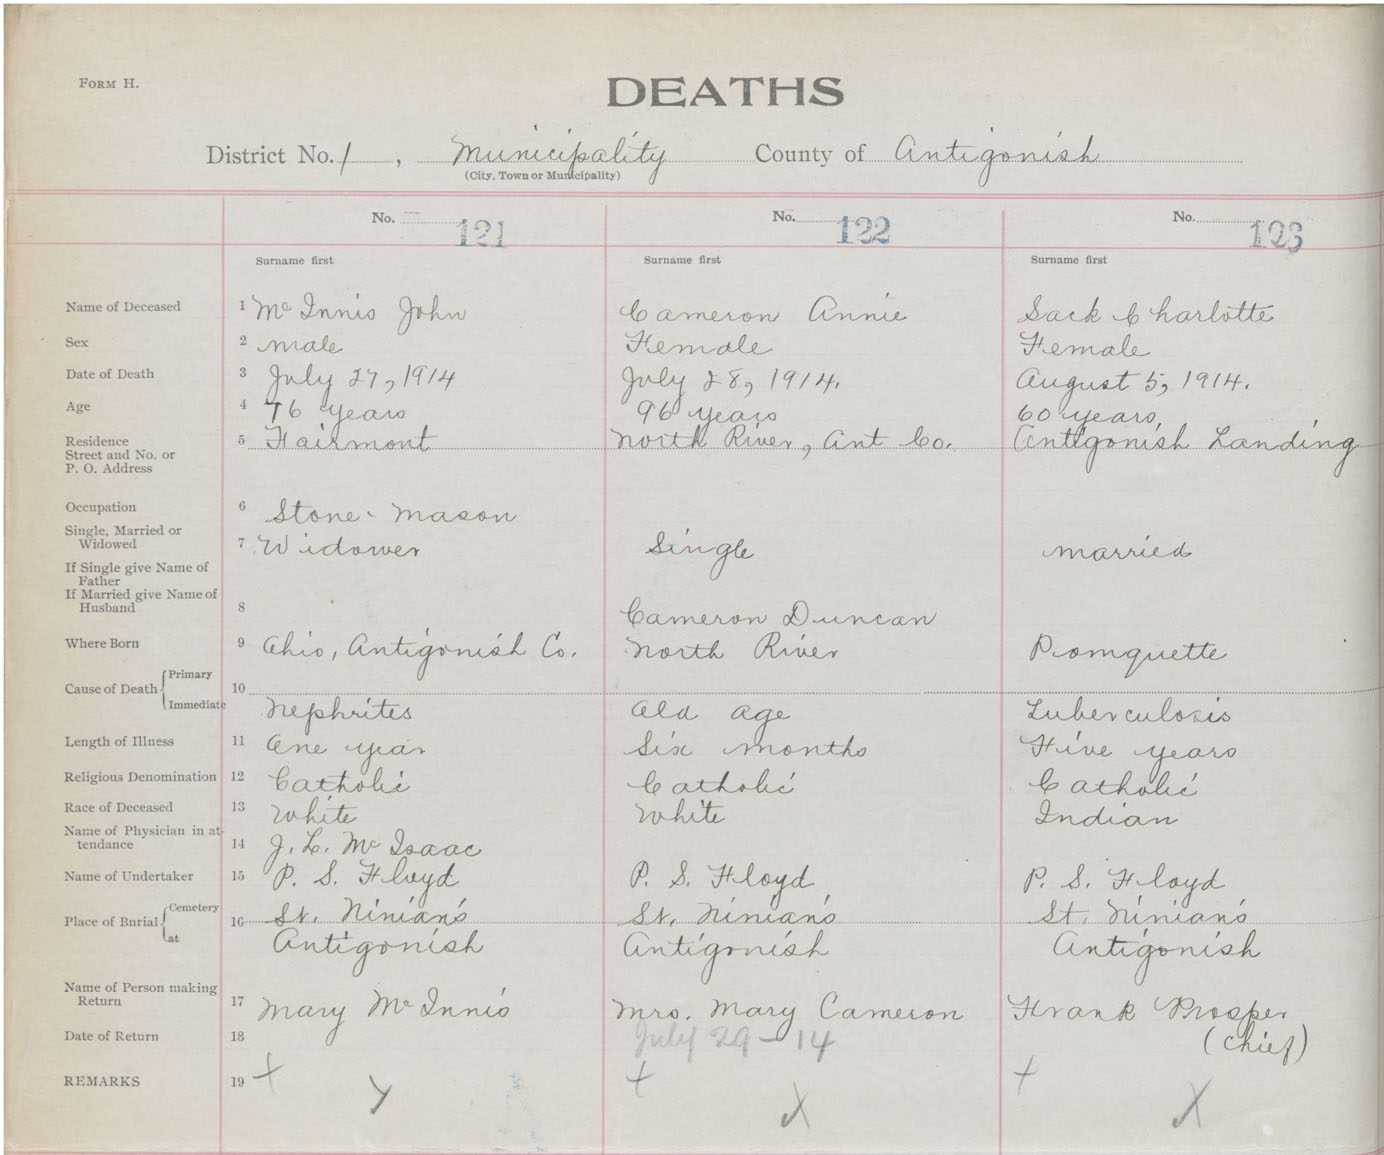 FORM H.
DEATHS
District No. 1, Municipality County of Antigonish
(City, Town or Municipality)
No. 121 No. 122 No. 123
Surname first Surname first Surname first
Name of Deceased 1 Mc Innis John Cameron Annie Sack Charlotte
Sex 2 male Female Female
Date of Death 3 July 27, 1914 July 28, 1914. August 5, 1914.
Age 4 76 years 96 years 60 years,
Residence 5 Fairmont North River, Ant Co. Antigonish Landing
Street and No. or
P. O. Address
Occupation 6 Stone-mason
Single, Married or
Widowed 7 Widower Single married
If Single give Name of
Father
If Married give Name of
Husband 8 Cameron Duncan
Where Born 9 Ohio, Antigonish Co. North River Pomquette
Cause of Death { Primary 10
Immediate Nephrites Old age Tuberculosis
Length of Illness 11 One year Six months Five years
Religious Denomination 12 Catholic Catholic Catholic
Race of Deceased 13 White White Indian
Name of Physician in at-
tendance 14 J. L. Mc Isaac
Name of Undertaker 15 P. S. Floyd P. S. Floyd P. S. Floyd
Place of Burial { Cemetery 16 St. Ninian's St. Ninian's St. Ninian's
at Antigonish Antigonish Antigonish
Name of Person making
Return 17 Mary Mc Innis Mrs. Mary Cameron Frank Prosper
Date of Return 18 July 29-14 (Chief)
REMARKS 19 + + +
X X X